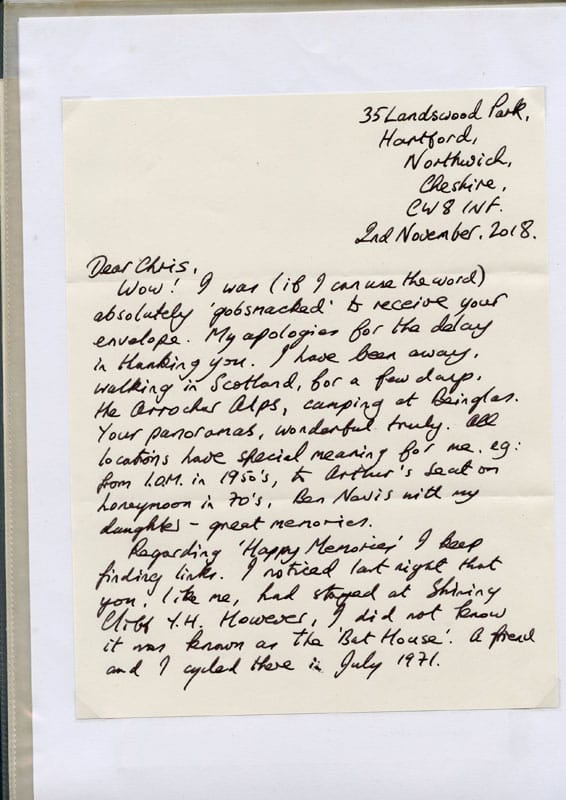 35 Landswood Park,
Hartford,
Northwich,
Cheshire,
CW8 1NF.
2nd November. 2018.
Dear Chris,
Wow! I was (if I can use the word)
absolutely 'gobsmacked' to receive your
envelope. My apologies for the delay
in thanking you. I have been away,
walking in Scotland, for a few days,
the Arrochar Alps, camping at Beinglas.
Your panoramas, wonderful truly. All
locations have special meaning for me. eg:
from I.O.M. in 1950's, to Arthur's seat on
honeymoon in 70's, Ben Nevis with my
daughter - great memories.
Regarding 'Happy Memories' I keep
finding links. I noticed last night that
you, like me, had stayed at Shining
Cliff Y.H. However, I did not know
it was known as the 'Bat House'. A friend
and I cycled there in July 1971.